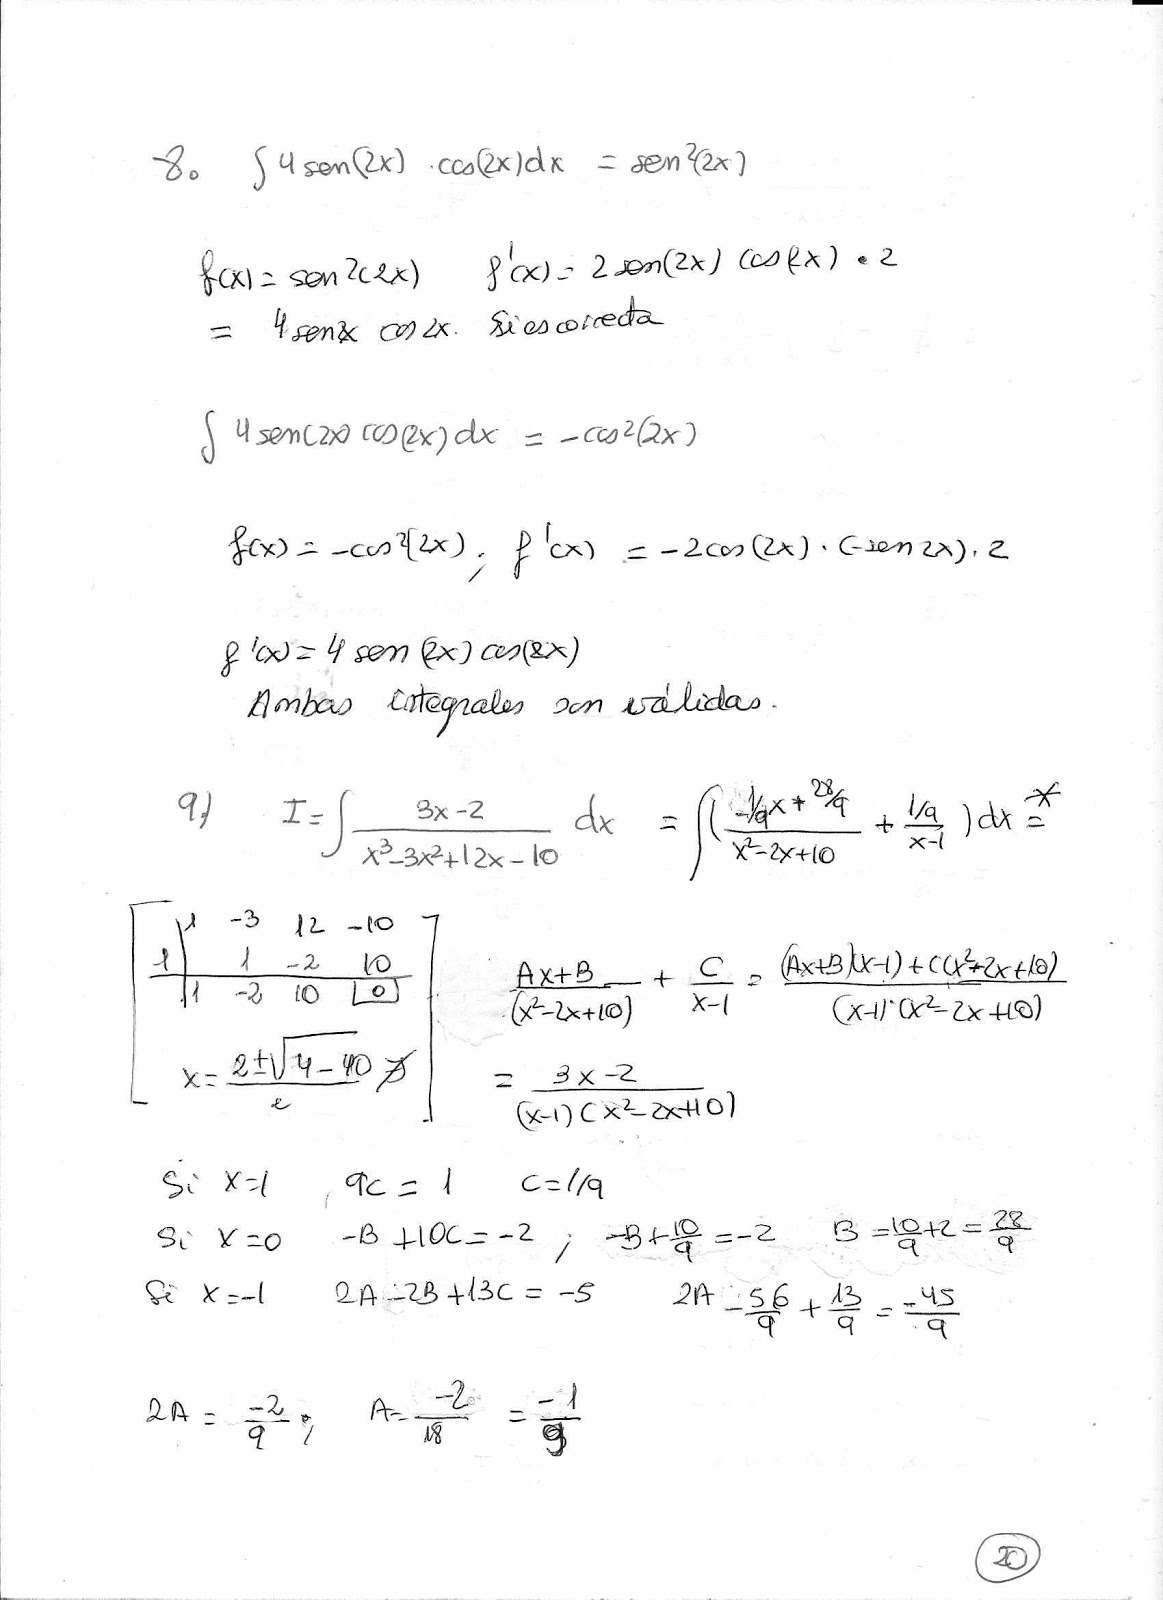 8. ∫ 4 sen(2x) · cos(2x) dx = sen²(2x)
f(x) = sen²(2x) f'(x) = 2 sen(2x) cos(2x) · 2
= 4 sen2x cos 2x. Si es correcta
∫ 4 sen(2x) cos(2x) dx = -cos²(2x)
f(x) = -cos²(2x); f'(x) = -2cos(2x) · (-sen 2x) · 2
f'(x) = 4 sen(2x) cos(2x)
Ambas integrales son válidas.
9) I = ∫ (3x-2)/(x³-3x²+12x-10) dx = ∫ ((-1/9x + 28/9)/(x²-2x+10) + (1/9)/(x-1)) dx =*
1 -3 12 -10
1 | 1 -2 10
1 -2 10 |0|
(Ax+B)/(x²-2x+10) + C/(x-1) = ((Ax+B)(x-1) + C(x²-2x+10))/((x-1)·(x²-2x+10))
x = (2±√(4-40))/2 ∄
= (3x-2)/((x-1)(x²-2x+10))
Si x=1, 9C = 1 C=1/9
Si x=0 -B+10C = -2; -B+10/9 = -2 B = 10/9+2 = 28/9
Si x=-1 2A-2B+13C = -5 2A - 56/9 + 13/9 = -45/9
2A = -2/9; A = -2/18 = -1/9
20